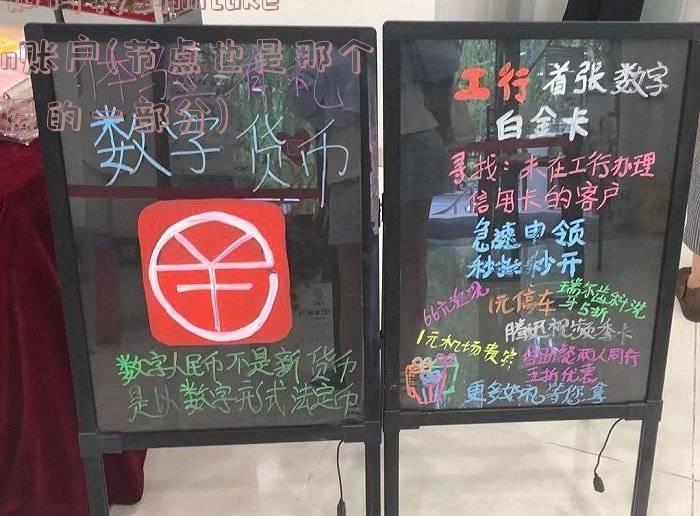 账户(节点也是那个
的一部分)
数字货币
数字人民币不是新货币
是以数字形式法定币
工行首张数字
白金卡
寻找:未在工行办理
信用卡的客户
急速申领
秒批秒开
66元兑现
1元停车
瑞尔齿科洗
牙5折
腾讯视频季卡
1元机场贵宾
两人同行
五折优惠
更多好礼等您拿